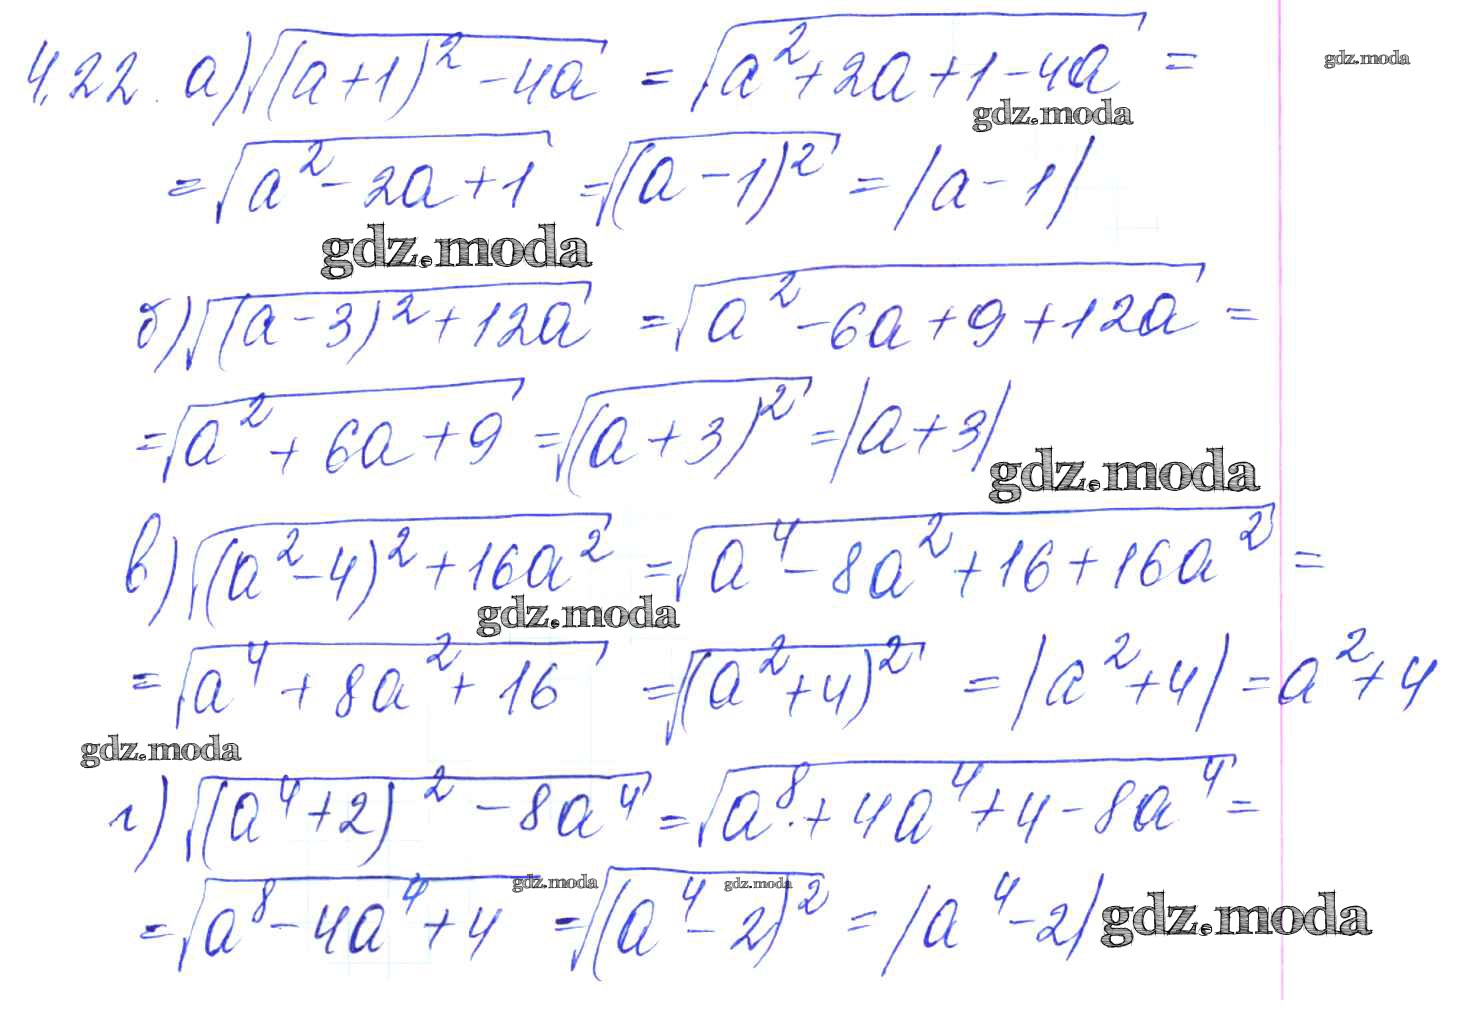 4.22. а) √((a+1)² - 4a) = √(a² + 2a + 1 - 4a) =
gdz.moda
gdz.moda
= √(a² - 2a + 1) = √((a - 1)²) = |a - 1|
gdz.moda
б) √((a - 3)² + 12a) = √(a² - 6a + 9 + 12a) =
= √(a² + 6a + 9) = √((a + 3)²) = |a + 3|
gdz.moda
в) √((a² - 4)² + 16a²) = √(a⁴ - 8a² + 16 + 16a²) =
gdz.moda
= √(a⁴ + 8a² + 16) = √((a² + 4)²) = |a² + 4| = a² + 4
gdz.moda
г) √((a⁴ + 2)² - 8a⁴) = √(a⁸ + 4a⁴ + 4 - 8a⁴) =
gdz.moda gdz.moda
= √(a⁸ - 4a⁴ + 4) = √((a⁴ - 2)²) = |a⁴ - 2|
gdz.moda